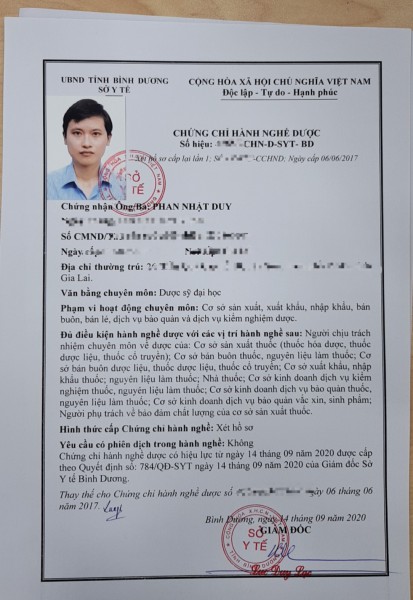 UBND TỈNH BÌNH DƯƠNG
SỞ Y TẾ
CỘNG HÒA XÃ HỘI CHỦ NGHĨA VIỆT NAM
Độc lập - Tự do - Hạnh phúc
CHỨNG CHỈ HÀNH NGHỀ DƯỢC
Số hiệu: CHN-D-SYT- BD
hồ sơ cấp lại lần 1; CCHND; Ngày cấp 06/06/2017
SỞ
Y TẾ
Chứng nhận Ông/Bà: PHAN NHẬT DUY
Số CMND/
Ngày cấp
Địa chỉ thường trú:
Gia Lai.
Văn bằng chuyên môn: Dược sỹ đại học
Phạm vi hoạt động chuyên môn: Cơ sở sản xuất, xuất khẩu, nhập khẩu, bán
buôn, bán lẻ, dịch vụ bảo quản và dịch vụ kiểm nghiệm dược.
Đủ điều kiện hành nghề dược với các vị trí hành nghề sau: Người chịu trách
nhiệm chuyên môn về dược của: Cơ sở sản xuất thuốc (thuốc hóa dược, thuốc
dược liệu, thuốc cổ truyền); Cơ sở bán buôn thuốc, nguyên liệu làm thuốc; Cơ
sở bán buôn dược liệu, thuốc dược liệu, thuốc cổ truyền; Cơ sở xuất khẩu, nhập
khẩu thuốc; nguyên liệu làm thuốc; Nhà thuốc; Cơ sở kinh doanh dịch vụ kiểm
nghiệm thuốc, nguyên liệu làm thuốc; Cơ sở kinh doanh dịch vụ bảo quản thuốc,
nguyên liệu làm thuốc; Cơ sở kinh doanh dịch vụ bảo quản vắc xin, sinh phẩm;
Người phụ trách về bảo đảm chất lượng của cơ sở sản xuất thuốc.
Hình thức cấp Chứng chỉ hành nghề: Xét hồ sơ
Yêu cầu có phiên dịch trong hành nghề: Không
Chứng chỉ hành nghề dược có hiệu lực từ ngày 14 tháng 09 năm 2020 được cấp
theo Quyết định số: 784/QĐ-SYT ngày 14 tháng 09 năm 2020 của Giám đốc Sở
Y tế Bình Dương.
Thay thế cho Chứng chỉ hành nghề dược số ngày 06 tháng 06
năm 2017.
Bình Dương, ngày 14 tháng 09 năm 2020
GIÁM ĐỐC
SỞ
Y TẾ